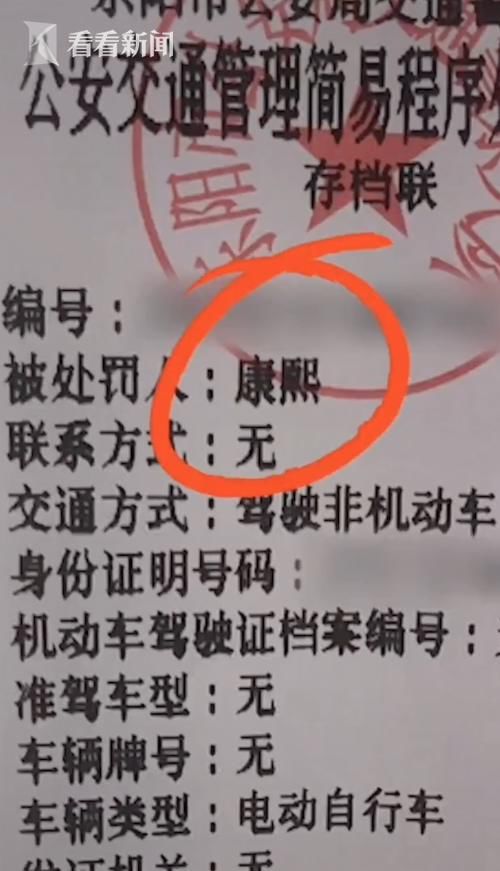 阳市公安局交通
看看新闻
公安交通管理简易程序
存档联
编号：
被处罚人：康熙
联系方式：无
交通方式：驾驶非机动车
身份证明号码：
机动车驾驶证档案编号：
准驾车型：无
车辆牌号：无
车辆类型：电动自行车
发证机关：无